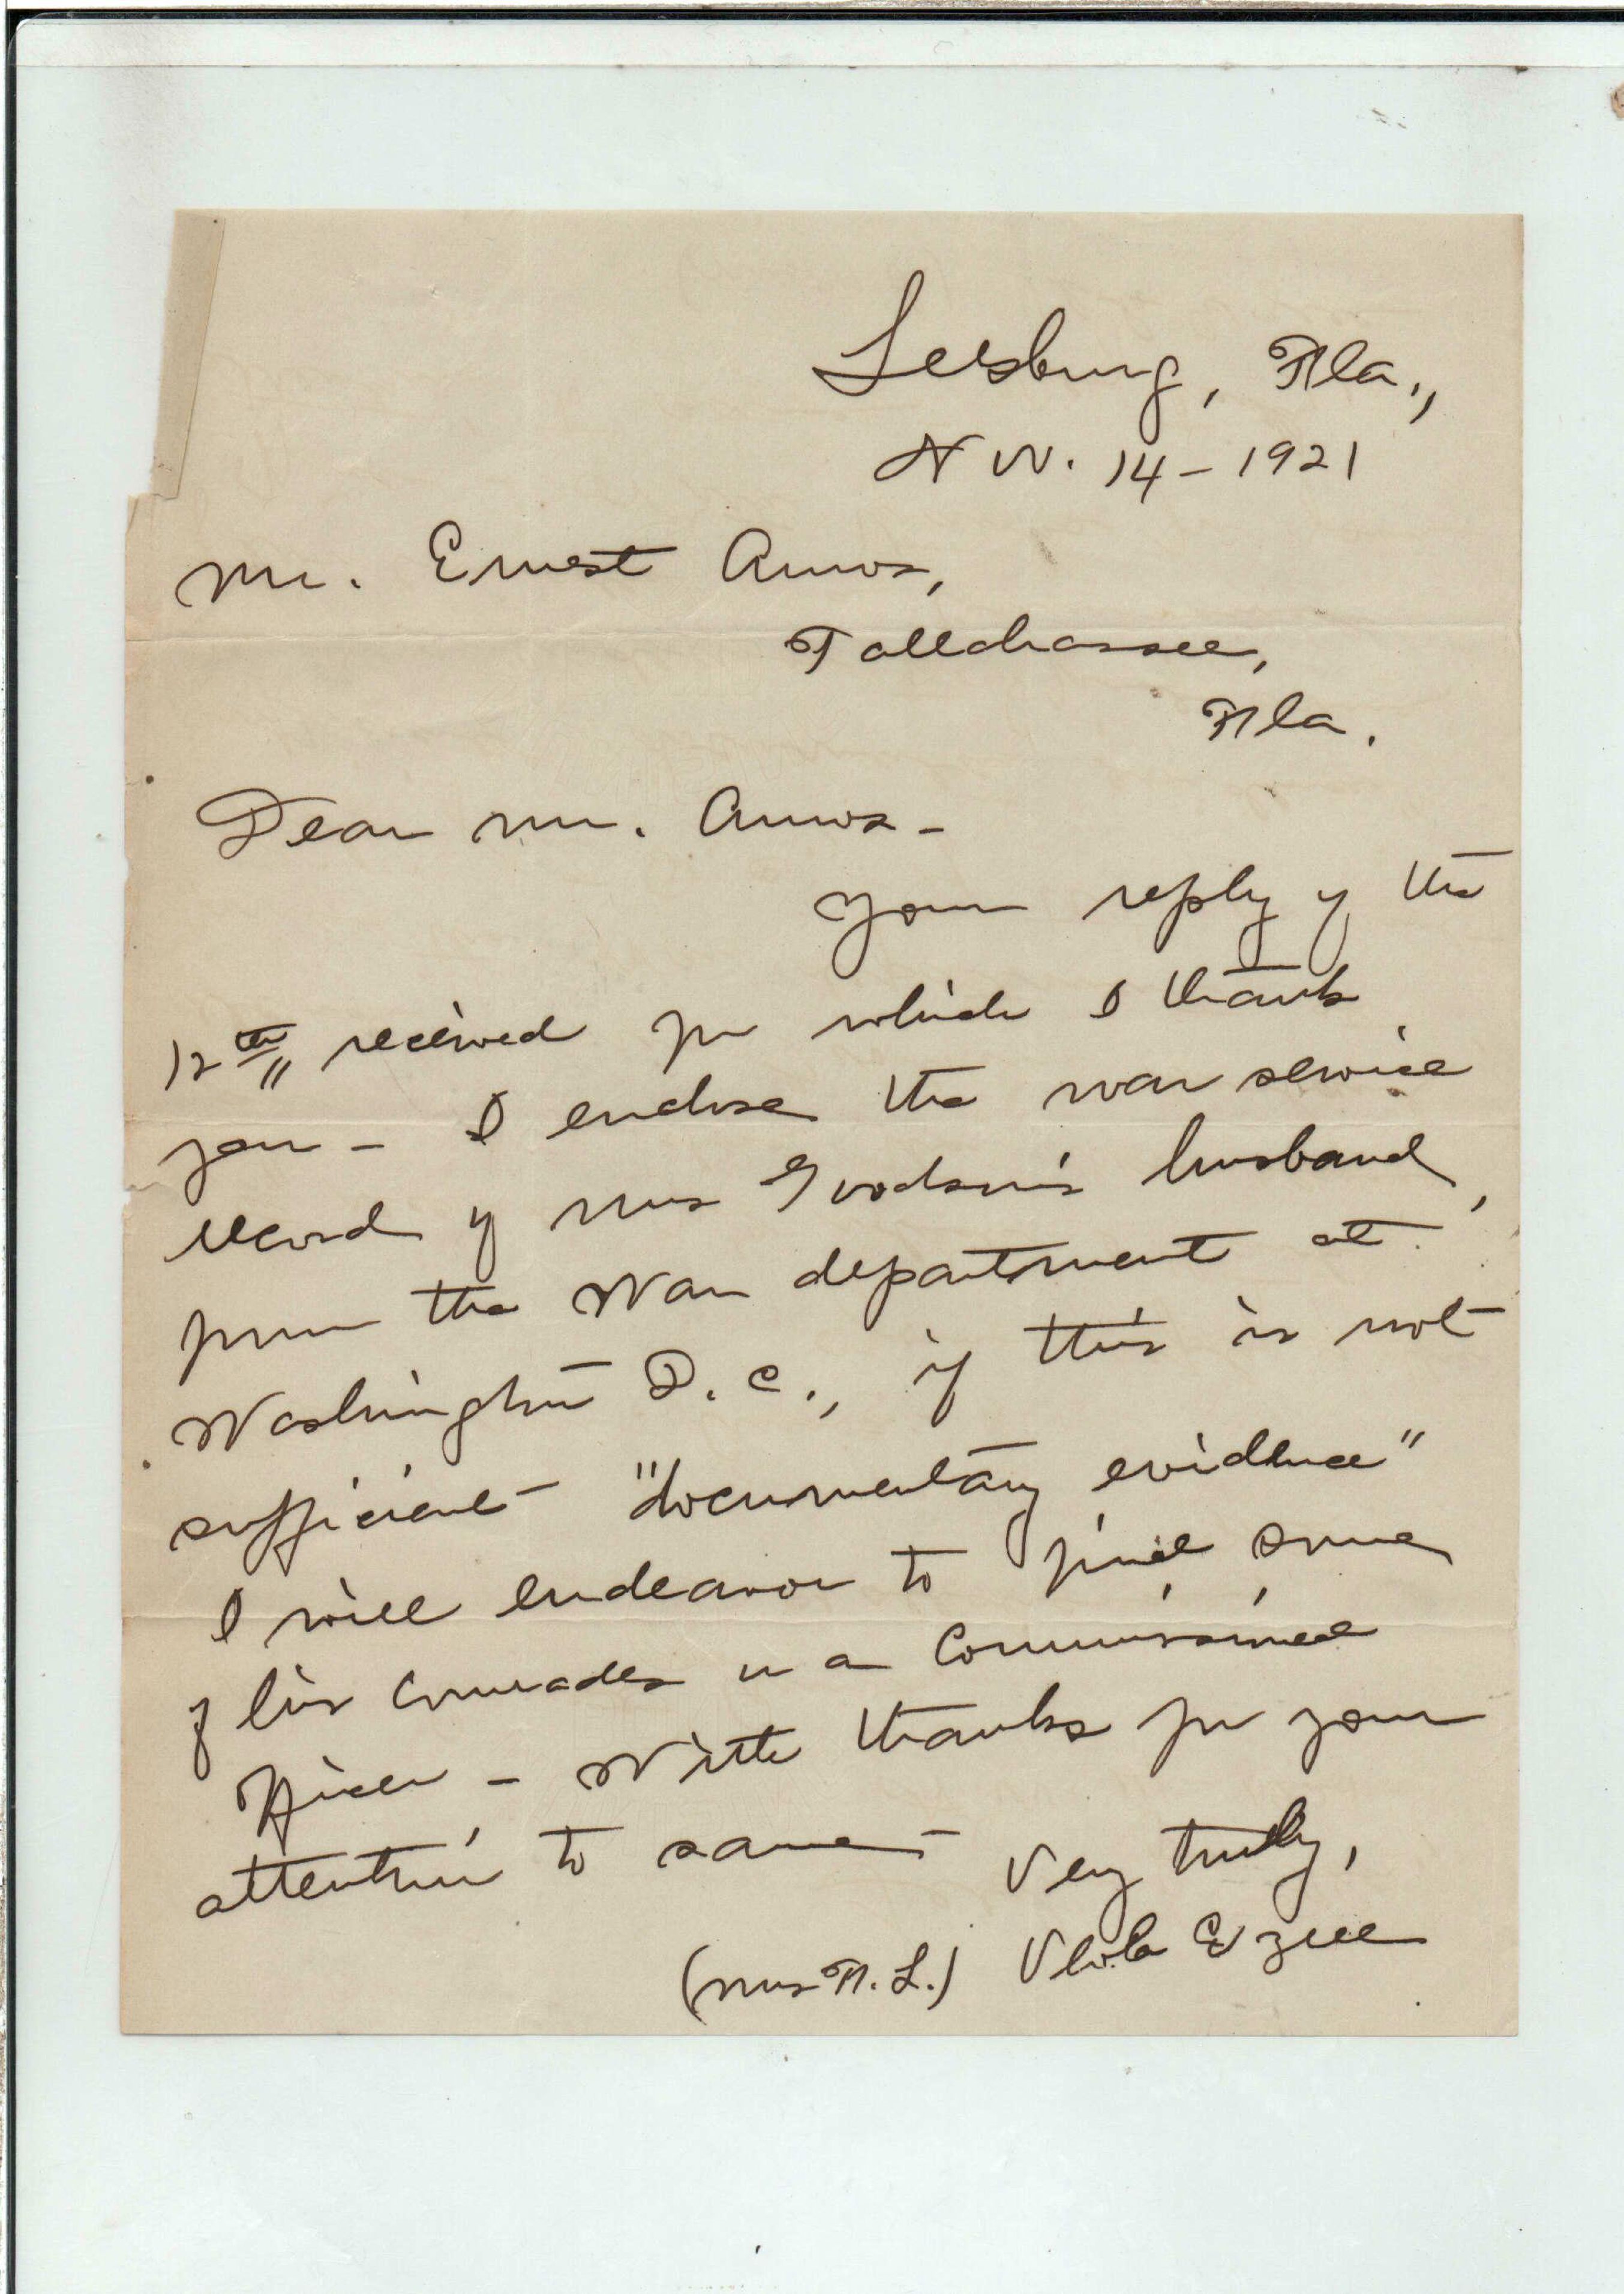 Leesburg, Fla.,
Nov. 14 - 1921
Mr. Ernest Amos,
Tallahassee,
Fla.
Dear Mr. Amos -
Your reply of the
12th received for which I thank
you - I enclose the war service
record of Mrs Goodson's husband,
from the War department at
Washington D. C., if this is not
sufficient "documentary evidence"
I will endeavor to find some
of his comrades or a Commissioned
Officer - With thanks for your
attention to same - Very truly,
(Mrs F. L.) Viola Ezell